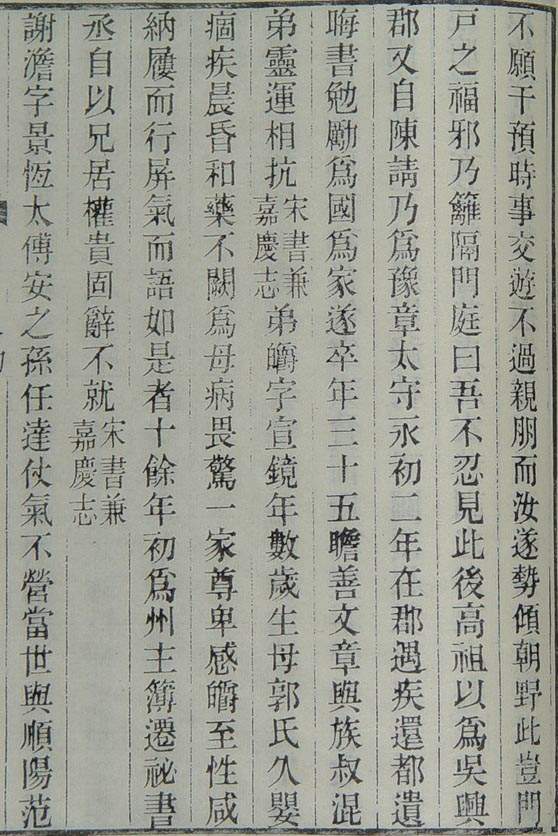 不願干預時事交遊不過親朋而汝遂勢傾朝野此豈門
戸之福邪乃籬隔門庭曰吾不忍見此後高祖以爲吳興
郡又自陳請乃爲豫章太守永初二年在郡遇疾還都遺
晦書勉勵爲國爲家遂卒年三十五瞻善文章與族叔混
弟靈運相抗宋書兼嘉慶志弟㬭字宣鏡年數歲生母郭氏久嬰
痼疾晨昏和藥不闕爲母病畏驚一家尊卑感㬭至性咸
納屨而行屏氣而語如是者十餘年初爲州主簿遷祕書
丞自以兄居權貴固辭不就宋書兼嘉慶志
謝澹字景恆太傅安之孫任達仗氣不營當世與順陽范